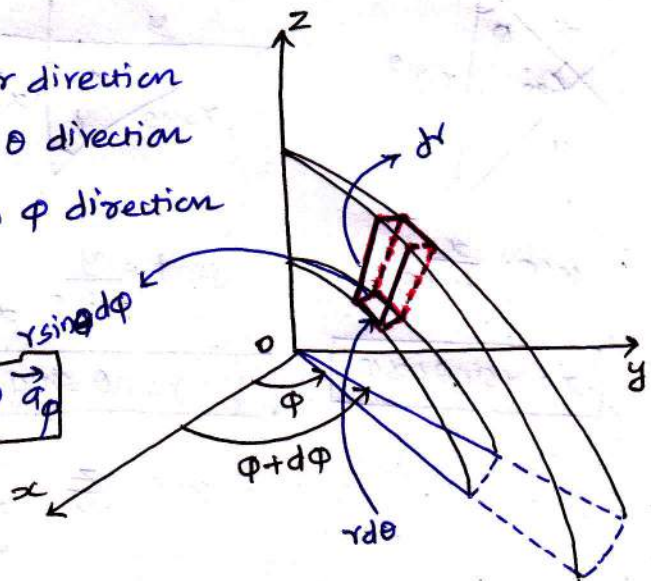 r direction
θ direction
φ direction
z
dr
rsinθdφ
a⃗φ
o
y
φ
φ+dφ
x
rdθ